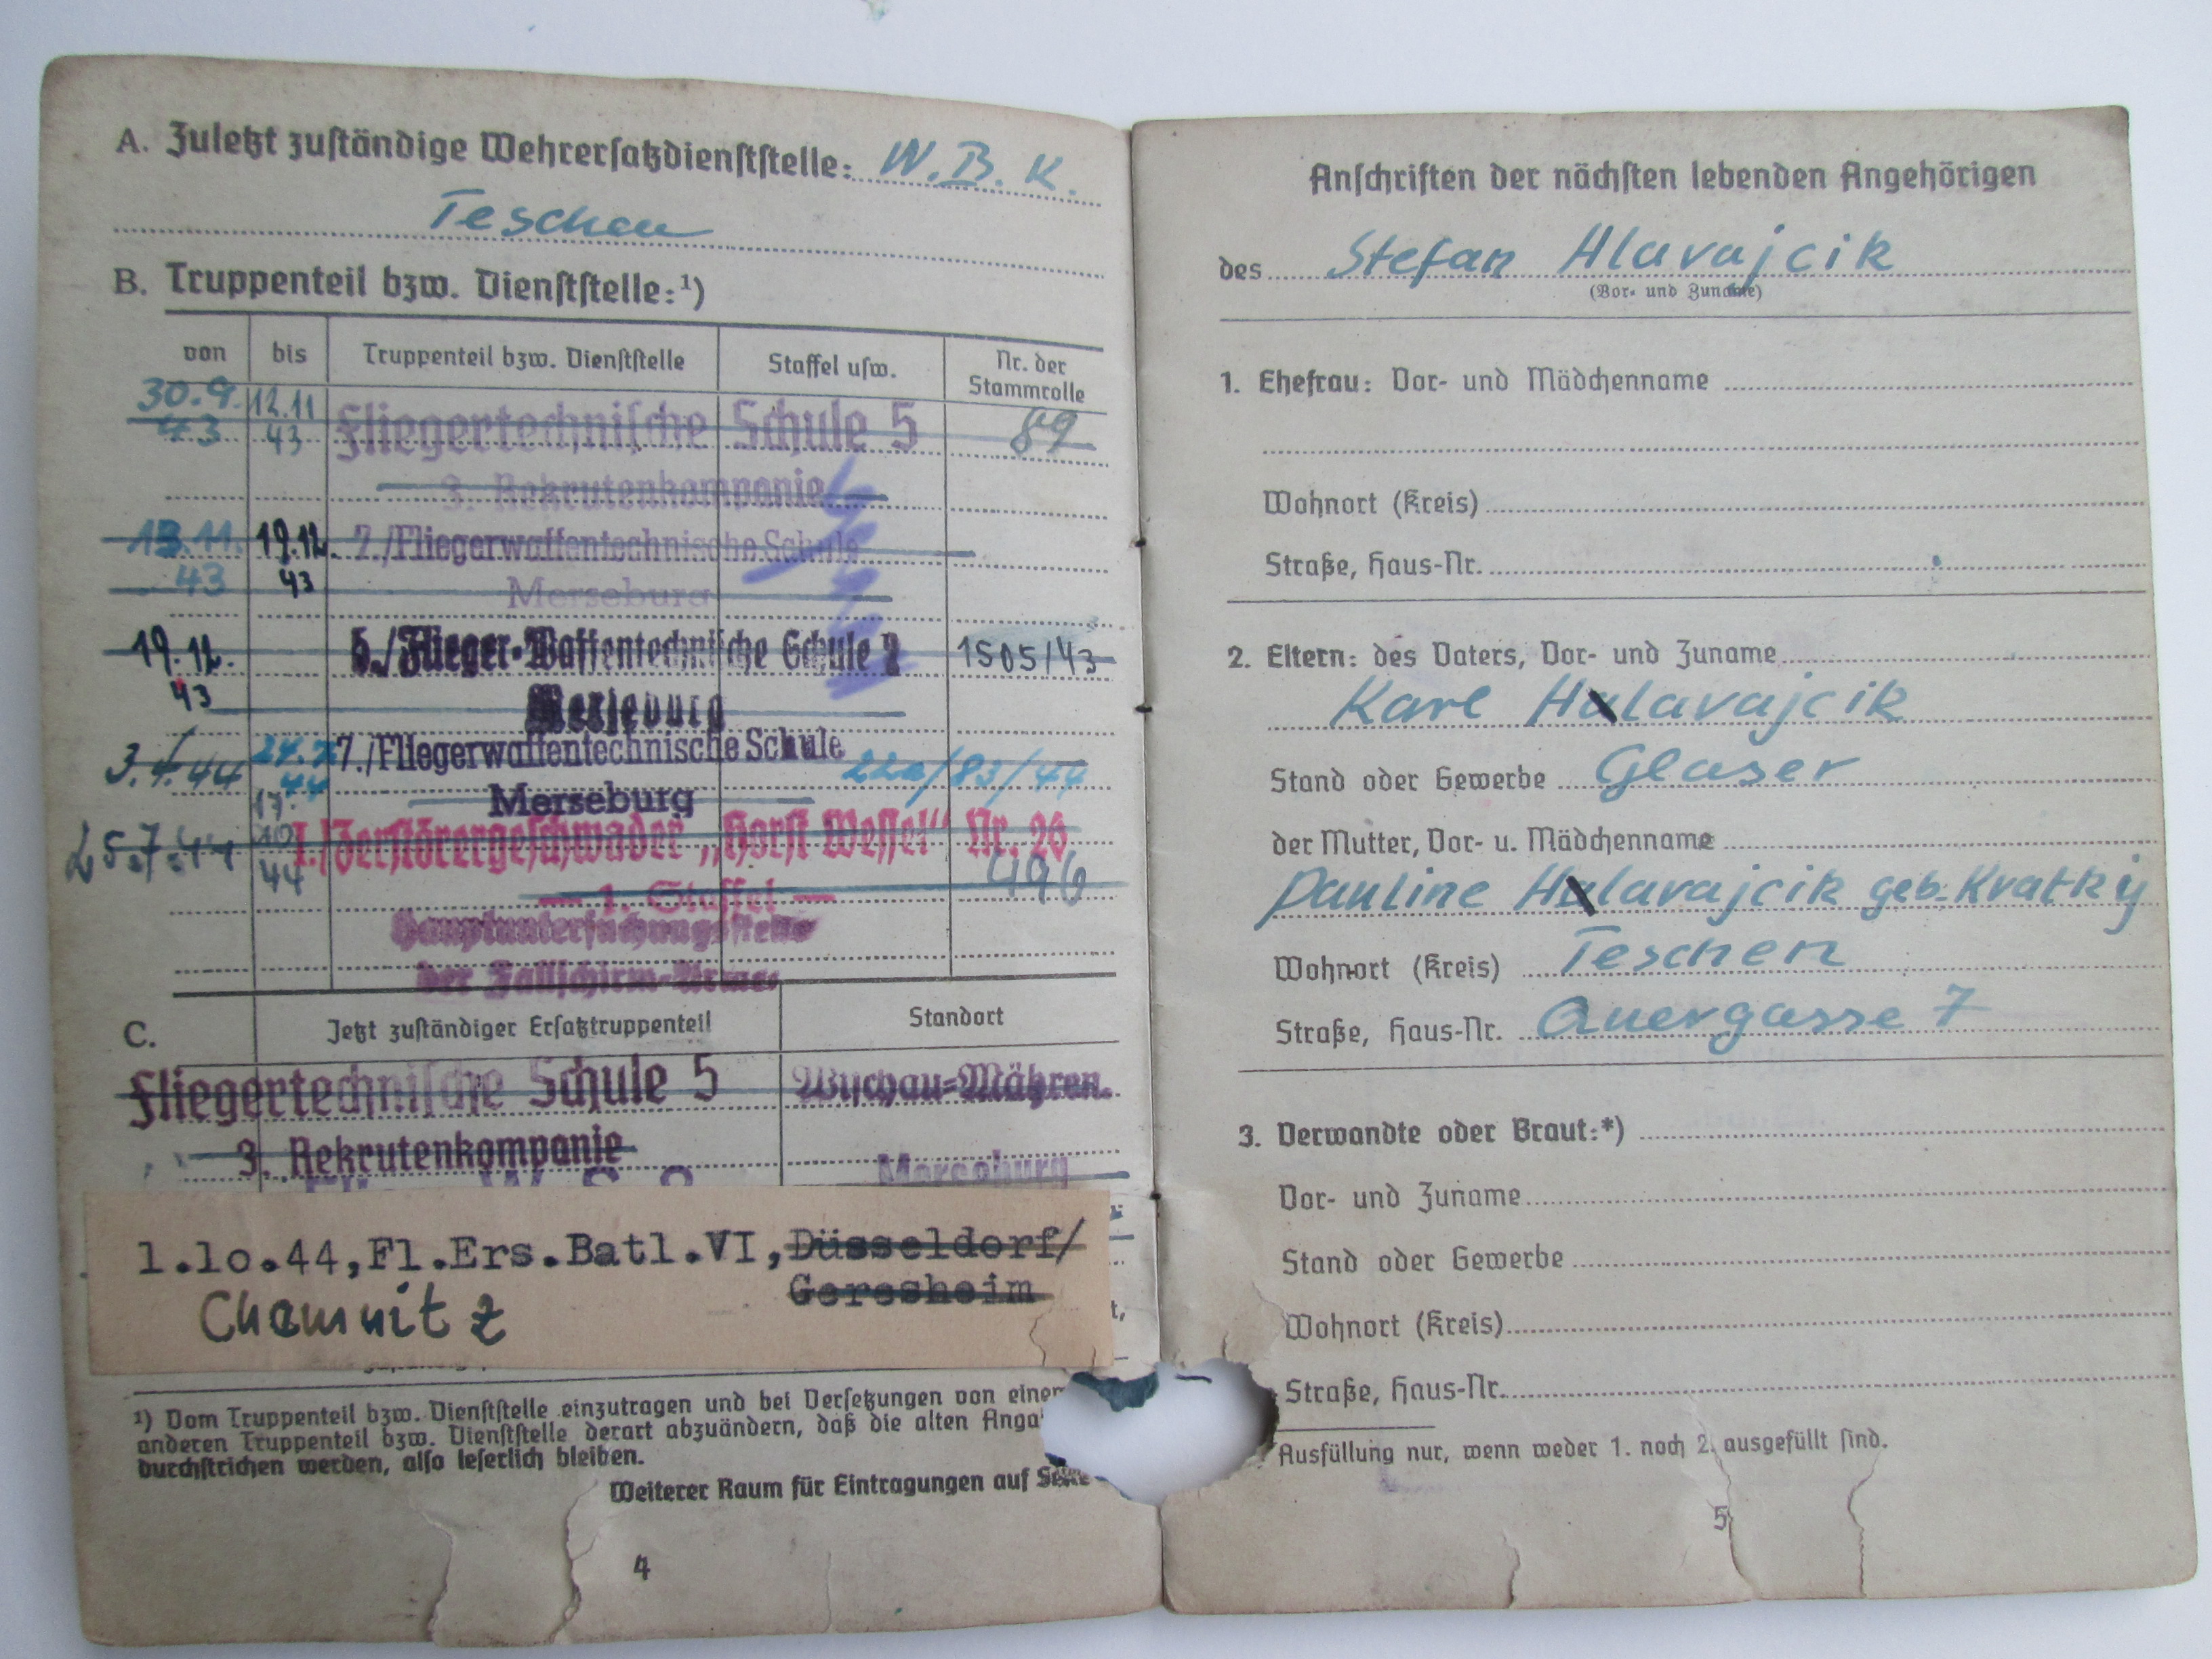 A. Zuletzt zuständige Wehrersatzdienststelle: W.B.K.
Teschen
B. Truppenteil bzw. Dienststelle:¹)
von bis Truppenteil bzw. Dienststelle Staffel usw. Nr. der Stammrolle
30.9. 43 12.11 43 Fliegertechnische Schule 5 89
3. Rekrutenkompanie
13.11. 43 19.12. 43 7./Fliegerwaffentechnische Schule
Merseburg
19.12. 43 6./Flieger-Waffentechnische Schule 2 1505/43
Merseburg
3.4.44 24.7. 44 7./Fliegerwaffentechnische Schule 22a/83/44
Merseburg
25.7.44 17. 10 44 I./Zerstörergeschwader „Horst Wessel" Nr. 26
496
1. Staffel
Hauptuntersuchungsstelle
der Fallschirm-Armee
C. Jetzt zuständiger Ersatztruppenteil Standort
Fliegertechnische Schule 5 Wischau=Mähren.
3. Rekrutenkompanie
Merseburg
1.10.44,Fl.Ers.Batl.VI,Düsseldorf/
Geresheim
Chemnitz
¹) Vom Truppenteil bzw. Dienststelle einzutragen und bei Versetzungen von einem
anderen Truppenteil bzw. Dienststelle derart abzuändern, daß die alten Anga
durchstrichen werden, also leserlich bleiben.
Weiterer Raum für Eintragungen auf Seite
4
Anschriften der nächsten lebenden Angehörigen
des Stefan Hlavajcik
(Vor- und Zuname)
1. Ehefrau: Vor- und Mädchenname
Wohnort (Kreis)
Straße, Haus-Nr.
2. Eltern: des Vaters, Vor- und Zuname
Karl Hlavajcik
Stand oder Gewerbe Glaser
der Mutter, Vor- u. Mädchenname
Pauline Hlavajcik geb. Kratky
Wohnort (Kreis) Teschen
Straße, Haus-Nr. Quergasse 7
3. Verwandte oder Braut:*)
Vor- und Zuname
Stand oder Gewerbe
Wohnort (Kreis)
Straße, Haus-Nr.
Ausfüllung nur, wenn weder 1. noch 2. ausgefüllt sind.
5